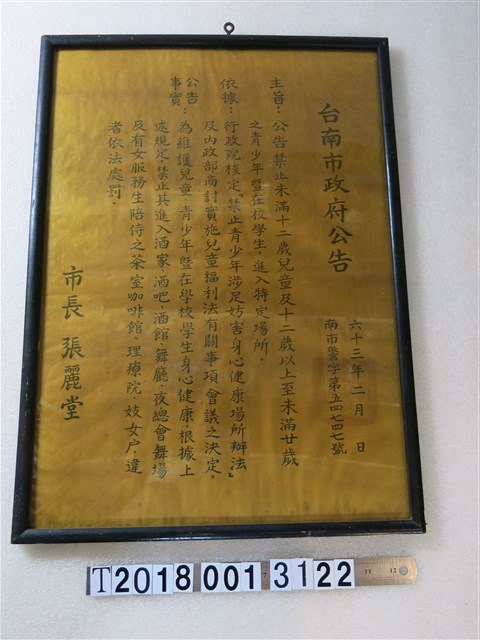 台南市政府公告
六十三年二月 日
南市警字第五四七四七號
主旨：公告禁止未滿十二歲兒童及十二歲以上至未滿廿歲
之青少年暨在校學生，進入特定場所。
依據：行政院核定「禁止青少年涉足妨害身心健康場所辦法」
及內政部商討實施兒童福利法有關事項會議之決定。
公告
事實：為維護兒童、青少年暨在學校學生身心健康，根據上
述規定，禁止其進入酒家、酒吧、酒館、舞廳、夜總會舞場
及有女服務生陪侍之茶室咖啡館、理療院、妓女户，違
者依法處罰。
市長 張麗堂
T2018 001 3122
11 12